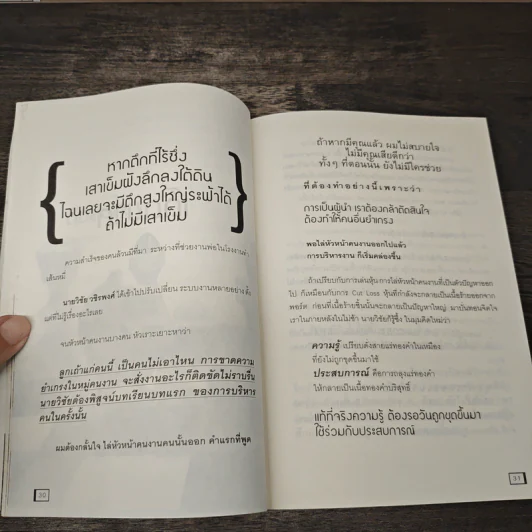 หากตึกที่ไร้ซึ่ง
เสาเข็มฝังลึกลงใต้ดิน
ไฉนเลยจะมีตึกสูงใหญ่ระฟ้าได้
ถ้าไม่มีเสาเข็ม
ความสำเร็จของคนล้วนมีที่มา ระหว่างที่ช่วยงานพ่อในโรงงานทำ
เส้นหมี่
นายวิชัย วชิรพงศ์ ได้เข้าไปปรับเปลี่ยน ระบบงานหลายอย่าง ทั้ง
แต่ที่ไม่รู้เรื่องอะไรเลย
จนหัวหน้าคนงานบางคน หัวเราะเยาะหาว่า
ลูกเถ้าแก่คนนี้ เป็นคนไม่เอาไหน การขาดความ
ยำเกรงในหมู่คนงาน จะสั่งงานอะไรก็ติดขัดไม่ราบรื่น
นายวิชัยต้องพิสูจน์บทเรียนบทแรก ของการบริหาร
คนในครั้งนั้น
ผมต้องกลั้นใจ ไล่หัวหน้าคนงานคนนั้นออก คำแรกที่พูด
30
ถ้าหากมีคุณแล้ว ผมไม่สบายใจ
ไม่มีคุณเสียดีกว่า
ทั้งๆ ที่ตอนนั้น ยังไม่มีใครช่วย
ที่ต้องทำอย่างนี้เพราะว่า
การเป็นผู้นำ เราต้องกล้าตัดสินใจ
ต้องทำให้คนอื่นยำเกรง
พอไล่หัวหน้าคนงานออกไปแล้ว
การบริหารงาน ก็เริ่มคล่องขึ้น
ถ้าเปรียบกับการเล่นหุ้น การไล่หัวหน้าคนงานที่เป็นตัวปัญหาออก
ไป ก็เหมือนกับการ Cut Loss หุ้นที่กำลังจะกลายเป็นเนื้อร้ายออกจาก
พอร์ต, ก่อนที่เนื้อร้ายชิ้นนั้นจะกลายเป็นปัญหาใหญ่ มาบั่นทอนจิตใจ
เราในภายหลังในไม่ช้า นายวิชัยก็รู้ซึ้ง ในมุมคิดใหม่ว่า
ความรู้ เปรียบดังสายแร่ทองคำในเหมือง
ที่ยังไม่ถูกขุดขึ้นมาใช้
ประสบการณ์ คือการถลุงแร่ทองคำ
ให้กลายเป็นเนื้อทองคำบริสุทธิ์
แท้ที่จริงความรู้ ต้องรอวันถูกขุดขึ้นมา
ใช้ร่วมกับประสบการณ์
31